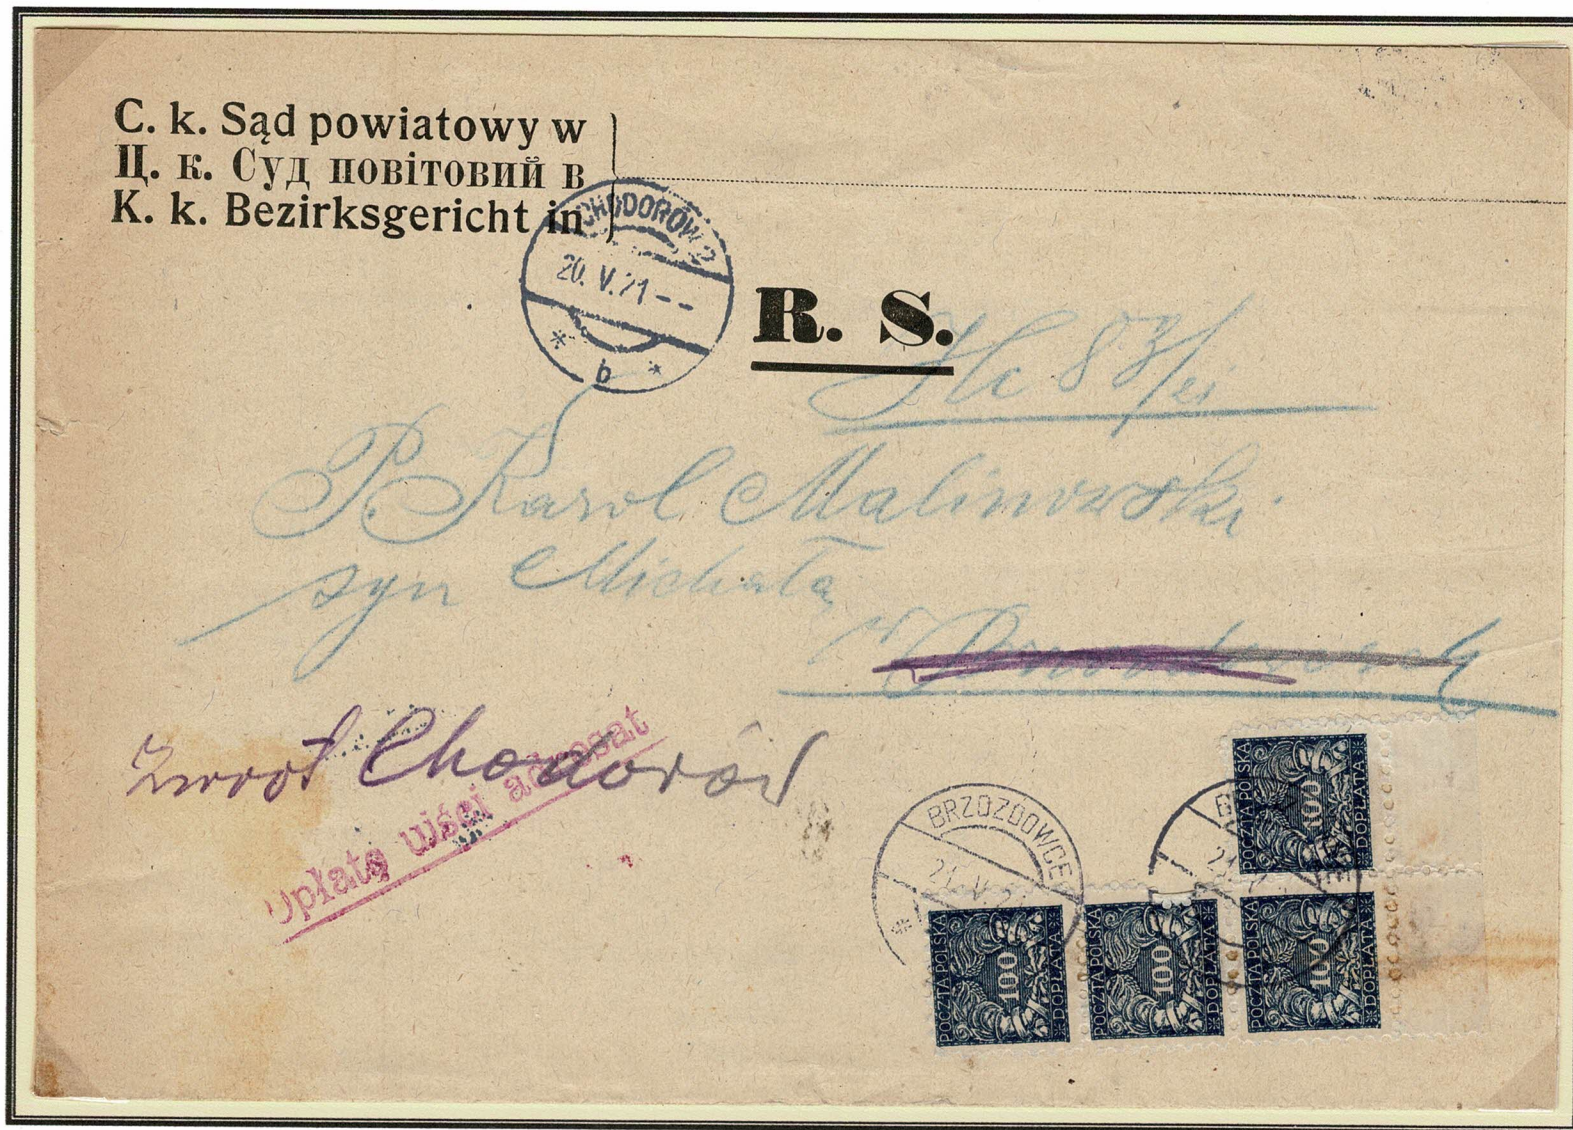 C. k. Sąd powiatowy w
Ц. к. Суд повітовий в
K. k. Bezirksgericht in
CHODORÓW 2
20. V. 21
b
R. S.
P. Karol Malinowski
syn Michała
w
Zwrot Chodorów
Opłatę uiści adresat
BRZOZDOWCE
21. V. 2
POCZTA POLSKA
100
DOPŁATA
POCZTA POLSKA
100
DOPŁATA
POCZTA POLSKA
100
DOPŁATA
POCZTA POLSKA
100
DOPŁATA